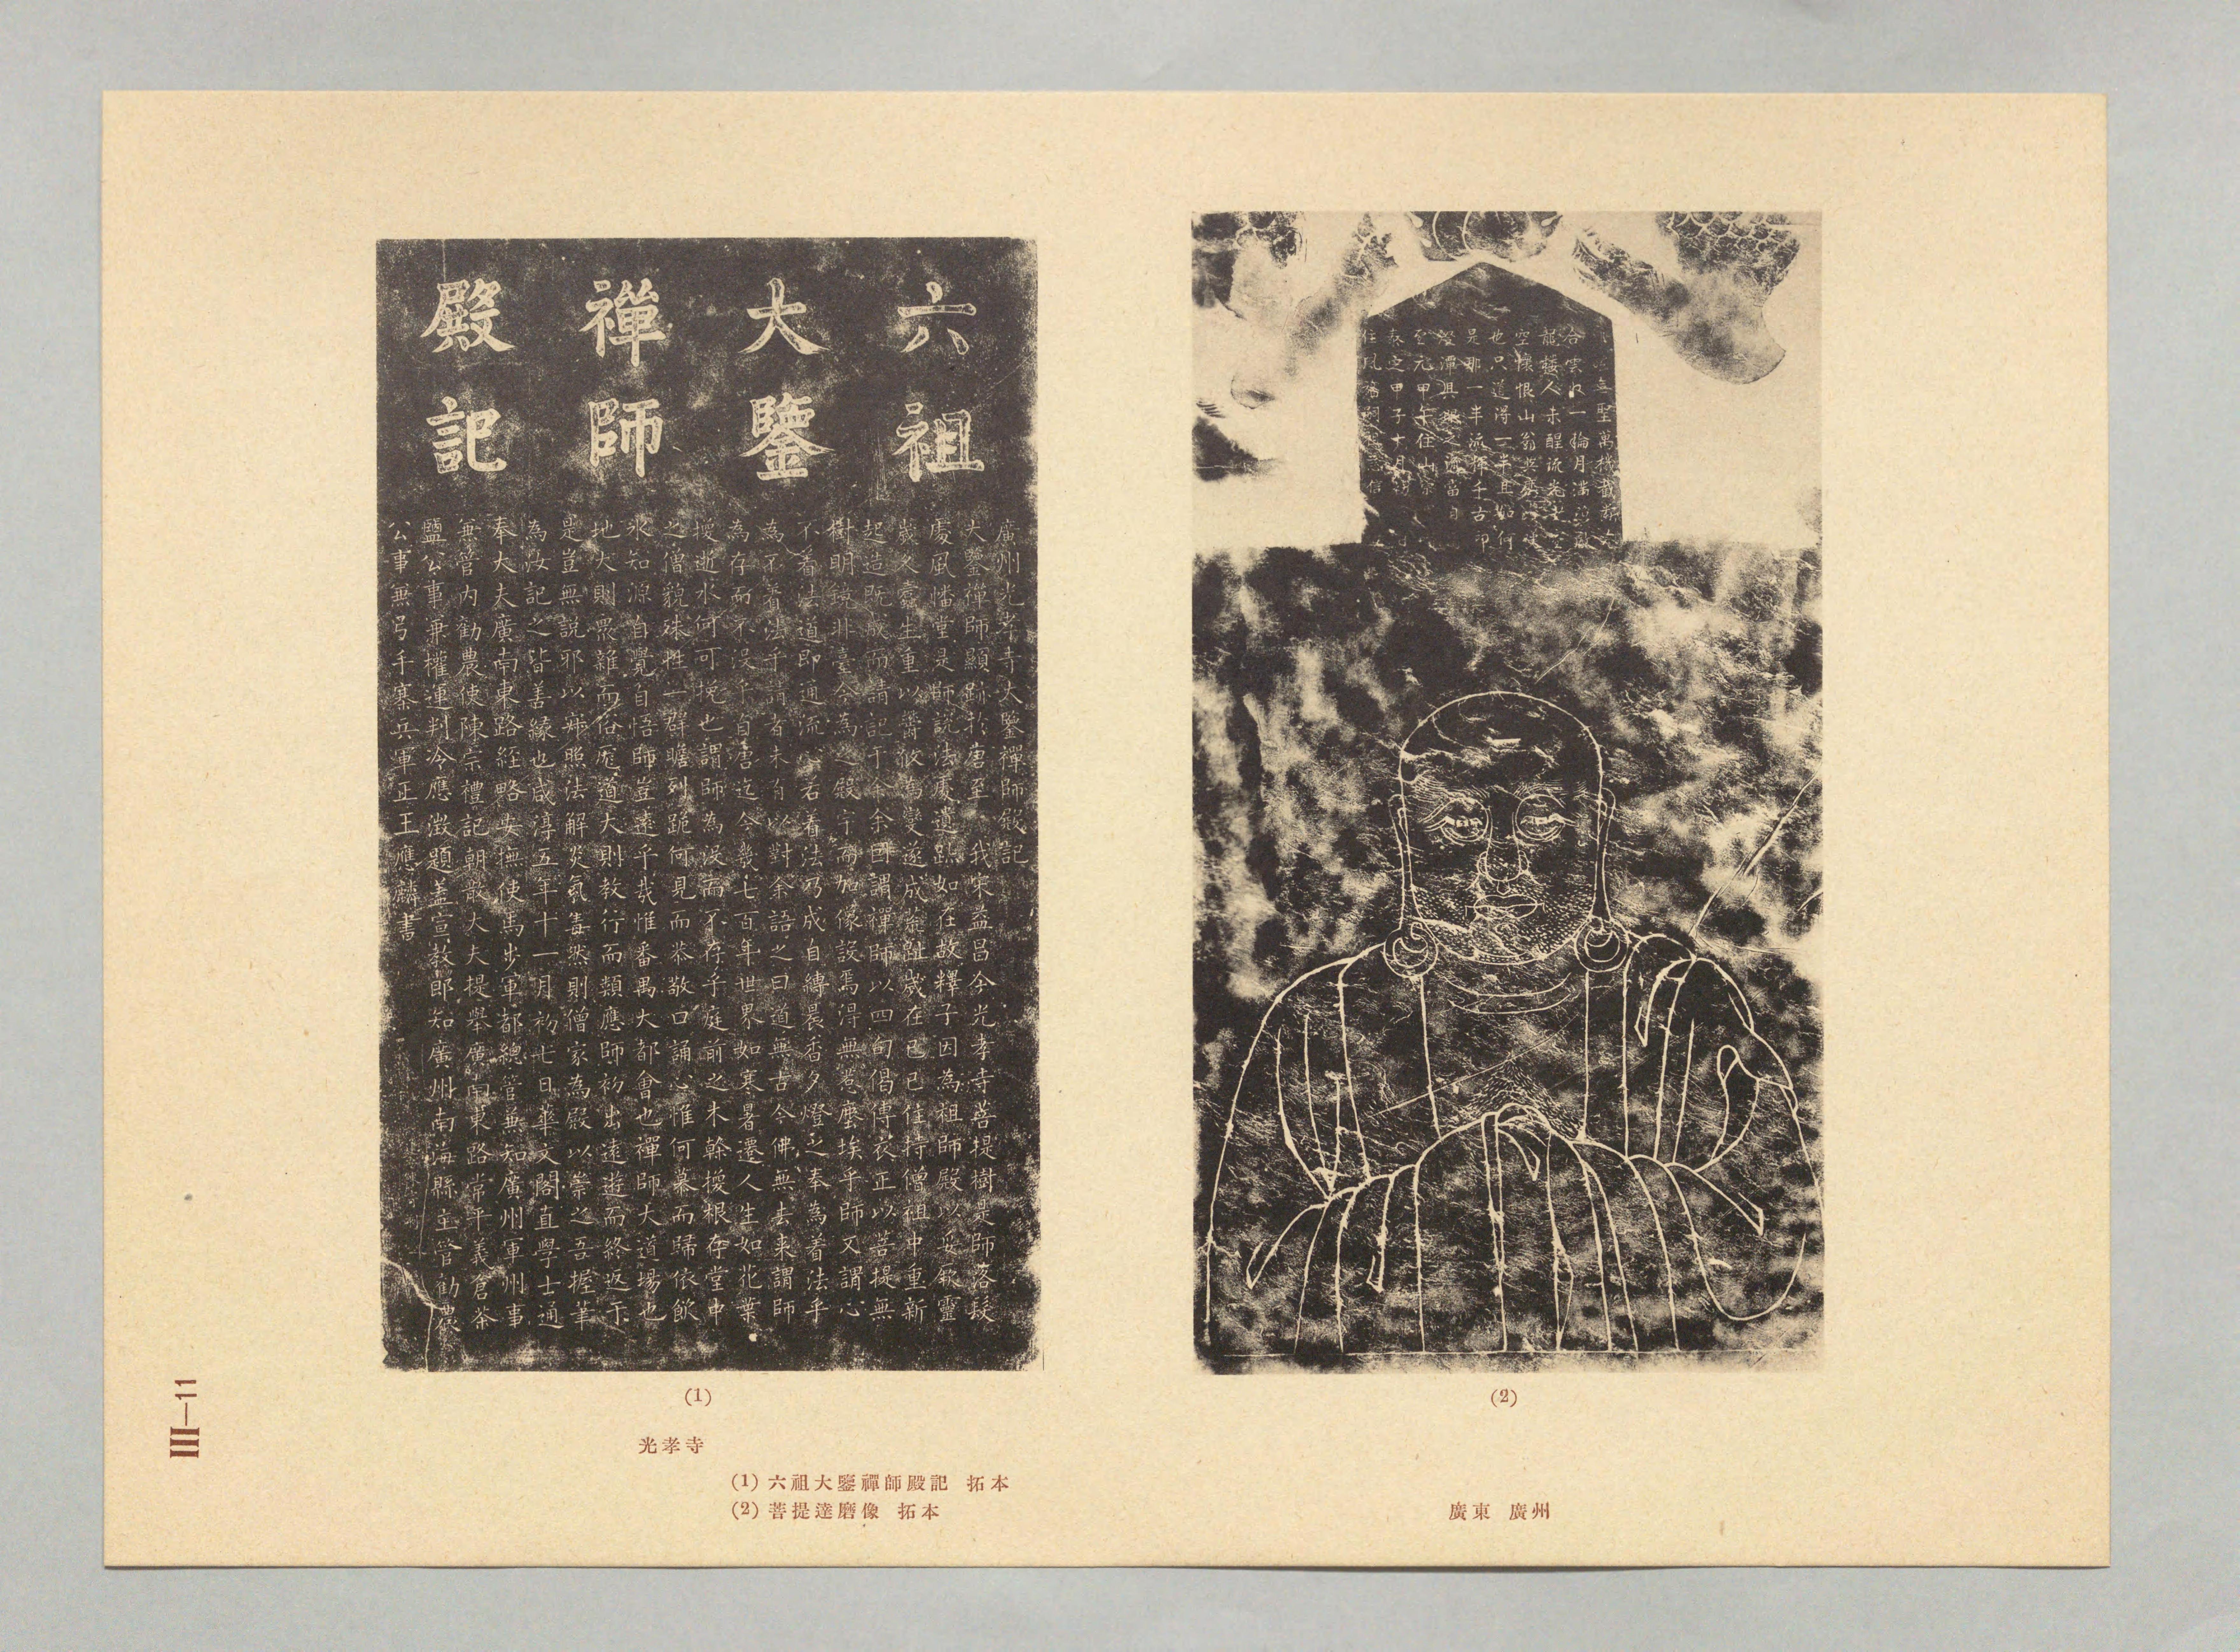 六祖
大鑒
禪師
殿記
廣州光孝寺大鑒禪師殿記
大鑒禪師顯跡於唐至我宋益昌今光孝寺菩提樹是師落髮
處風幡堂是師說法處遺跡如在故釋子因為祖師殿以妥厥靈
歲久蠹生重以鬱攸為變遂成荒趾歲在己巳住持僧祖中重新
起造既成而請記于余余因謂禪師以四句偈傳衣正以菩提無
樹明鏡非臺今為之殿宇而加像設焉得無惹塵埃乎師又謂心
不着法道即通流心若着法乃成自縛晨香夕燈之奉為着法乎
為不着法乎請者未有以對余語之曰道無古今佛無去来謂師
為存而不没乎自唐迄今幾七百年世界如寒暑遷人生如花葉
援逝水何可挽也謂師為没而不存乎庭前之木榦援根存堂中
之僧貌殊性一群瞻列跪何見而恭敬口誦心惟何慕而歸依飲
水知源自覺自悟師豈遠乎哉惟番禺大都會也禪師大道場也
地大則眾雜而俗厖道大則教行而類應師初出遠遊而終返于
是豈無說邪以燭照法解炎氛毒然則僧家為殿以崇之吾握筆
為汝記之皆善緣也咸淳五年十一月初七日華文閣直學士通
奉大夫廣南東路經略安撫使馬步軍都總管兼知廣州軍州事
兼管内勸農使陳宗禮記朝散大夫提舉廣南東路常平義倉茶
鹽公事兼權運判今應澂題蓋宣教郎知廣州南海縣主管勸農
公事兼弓手寨兵軍正王應麟書
合雲收一輪月滿
龍樓人未醒流
空懷恨山翁
也只道得一半且如何
是那一半流輝千古印
澄潭
至元甲午住山
泰定甲子十月
(1)
(2)
光孝寺
(1) 六祖大鑒禪師殿記 拓本
(2) 菩提達磨像 拓本
廣東 廣州
III—11